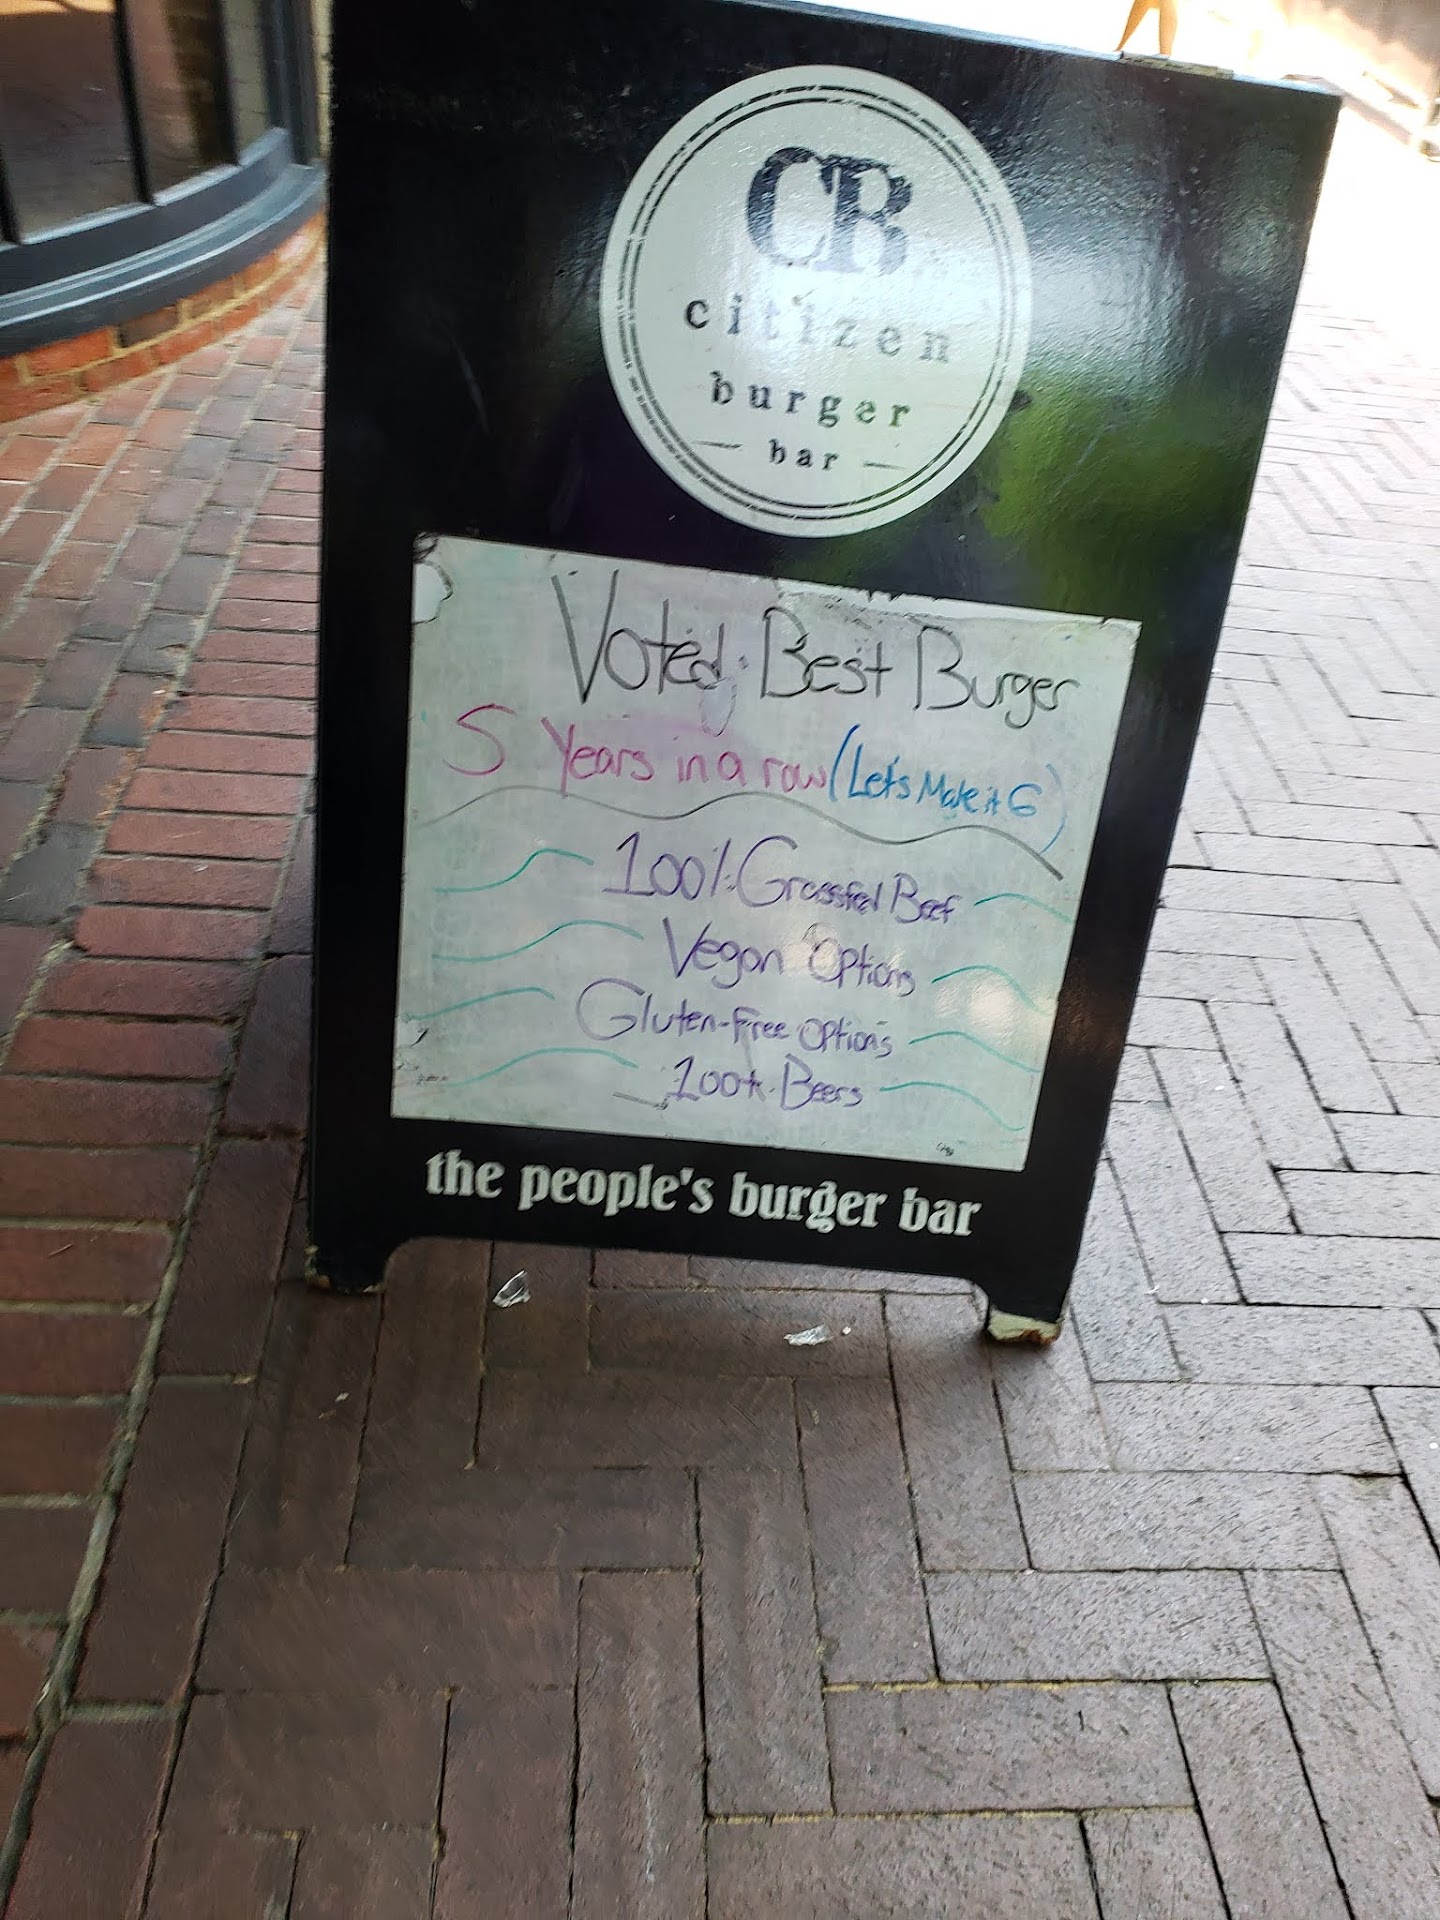 CB
citizen
burger
bar
Voted Best Burger
5 Years in a row (Let's Make it 6)
100% Grassfed Beef
Vegan Options
Gluten-Free Options
100+ Beers
the people's burger bar